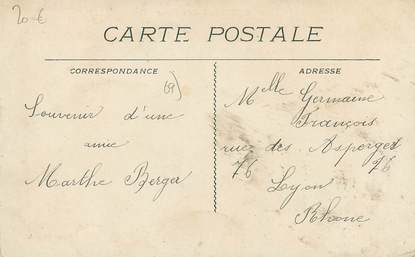 20 €
CARTE POSTALE
CORRESPONDANCE
ADRESSE
69)
Souvenir d'une
amie
Marthe Berger
Melle Germaine
François
rue des Asperges
76 76
Lyon
Rhone